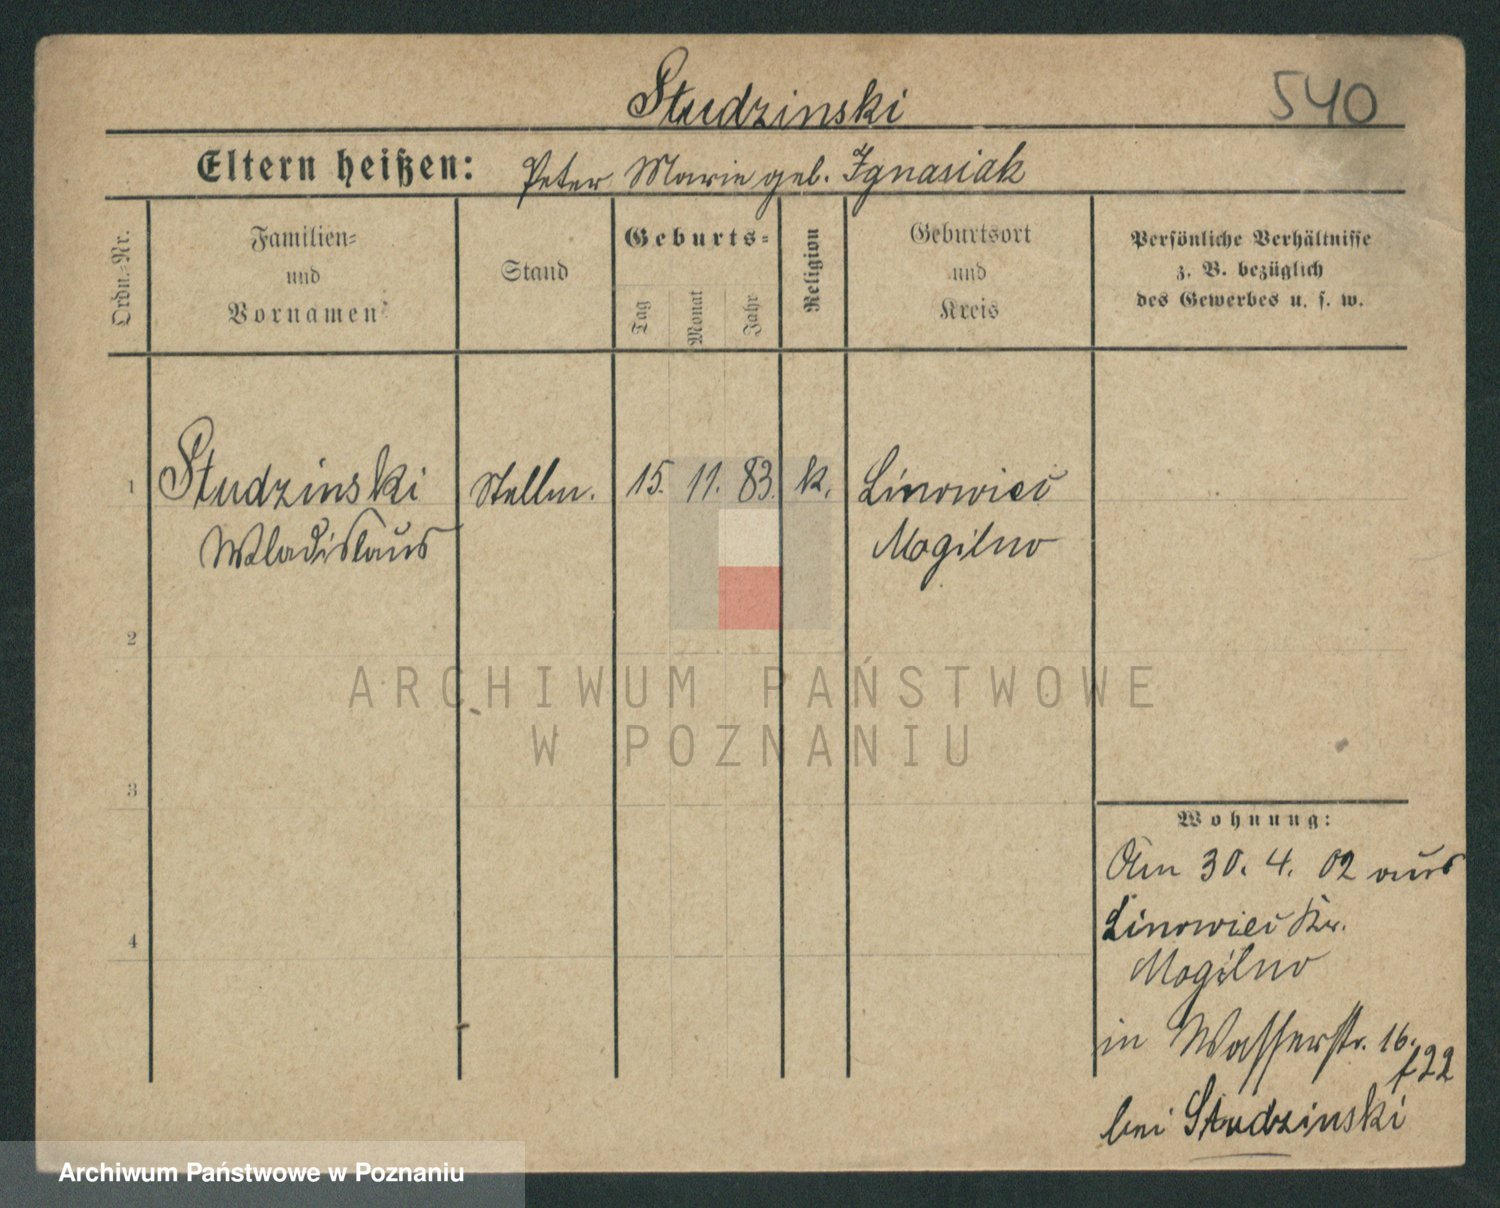 Studzinski
540
Eltern heißen: Peter Marie geb. Ignasiak
Ordn.-Nr.
Familien-
und
Vornamen
Stand
Geburts-
Tag
Monat
Jahr
Religion
Geburtsort
und
Kreis
Persönliche Verhältnisse
z. B. bezüglich
des Gewerbes u. s. w.
1 Studzinski Stellm. 15. 11. 83. k. Linowiec
Wladislaus Mogilno
2
ARCHIWUM PAŃSTWOWE
W POZNANIU
3
Wohnung:
Am 30. 4. 02 aus
4
Linowiec Kr.
Mogilno
in Wasserstr. 16.
f22
bei Studzinski
Archiwum Państwowe w Poznaniu